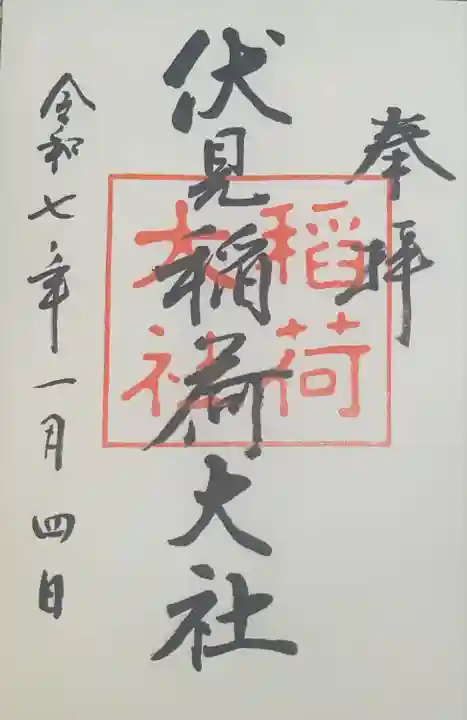 奉拝
伏見稲荷大社
稲荷
大社
令和七年一月四日